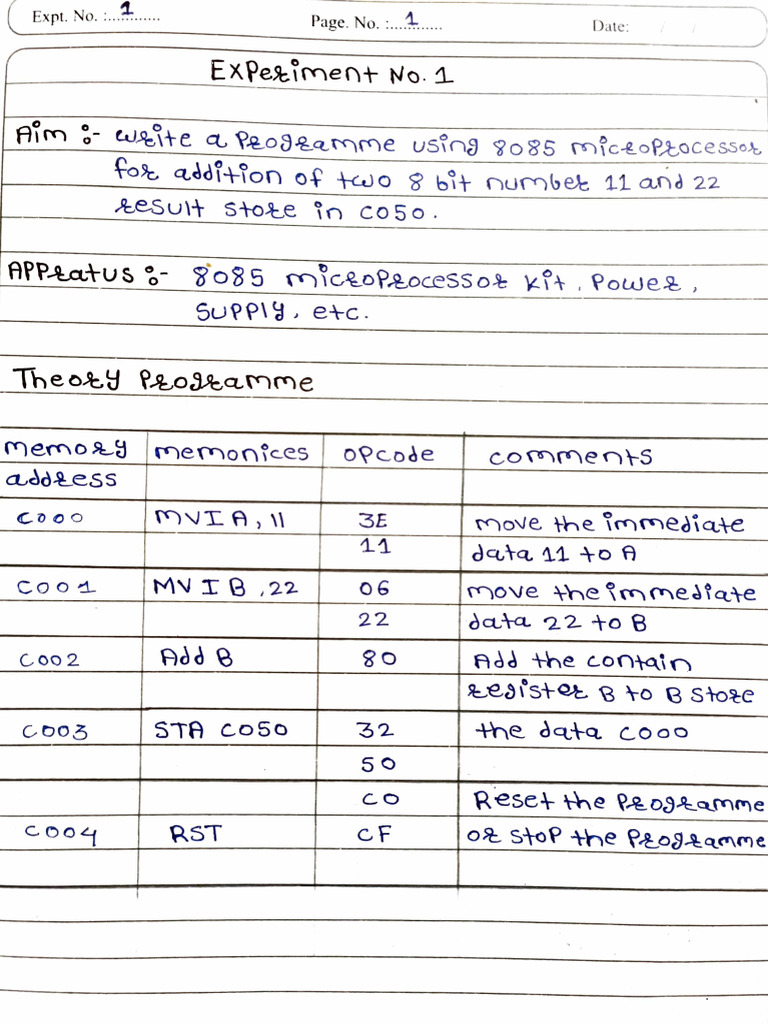 Expt. No. :...1............ Page. No. :...1......... Date: / /
Experiment No. 1
Aim :- write a Programme using 8085 microprocessor
for addition of two 8 bit number 11 and 22
result store in C050.
Appratus :- 8085 microprocessor kit, Power,
supply, etc.
Theory Programme
memory memonices opcode comments
address
C000 MVI A, 11 3E move the immediate
11 data 11 to A
C001 MVI B, 22 06 move the immediate
22 data 22 to B
C002 Add B 80 Add the contain
register B to B store
C003 STA C050 32 the data C000
50
C0 Reset the Programme
C004 RST CF or stop the Programme